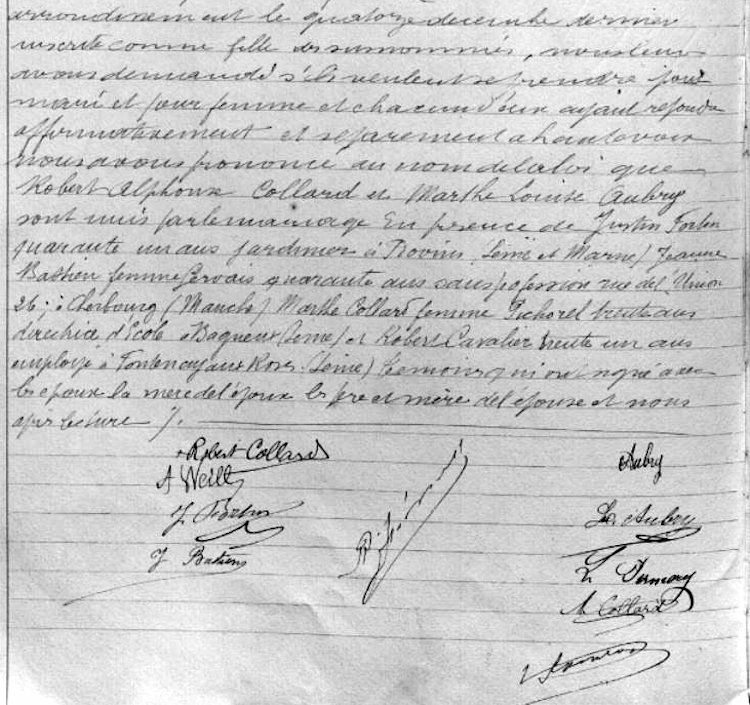 arrondissement le quatorze décembre dernier
inscrite comme fille des susnommés, nous leur
avons demandé s'ils veulent se prendre pour
mari et pour femme et chacun d'eux ayant répondu
affirmativement et séparement a haute voix
nous avons prononcé au nom de la loi que
Robert Alphonse Collard et Marthe Louise Aubry
sont unis par le mariage En présence de Justin Fortin
quarante un ans jardinier à Provins (Seine et Marne) Jeanne
Bastien femme Gervais quarante ans sans profession rue de l'Union
26; à Cherbourg (Manche) Marthe Collard femme Pichorel trente ans
directrice d'Ecole à Bagneux (Seine) et Robert Cavalier trente un ans
employé à Fontenay aux Roses (Seine) témoins qui ont signé avec
les époux la mère de l'époux les père et mère de l'épouse et nous
après lecture /.
Robert Collard Aubry
A Weill
J Fortin L. Aubry
J Bastien
M Collard